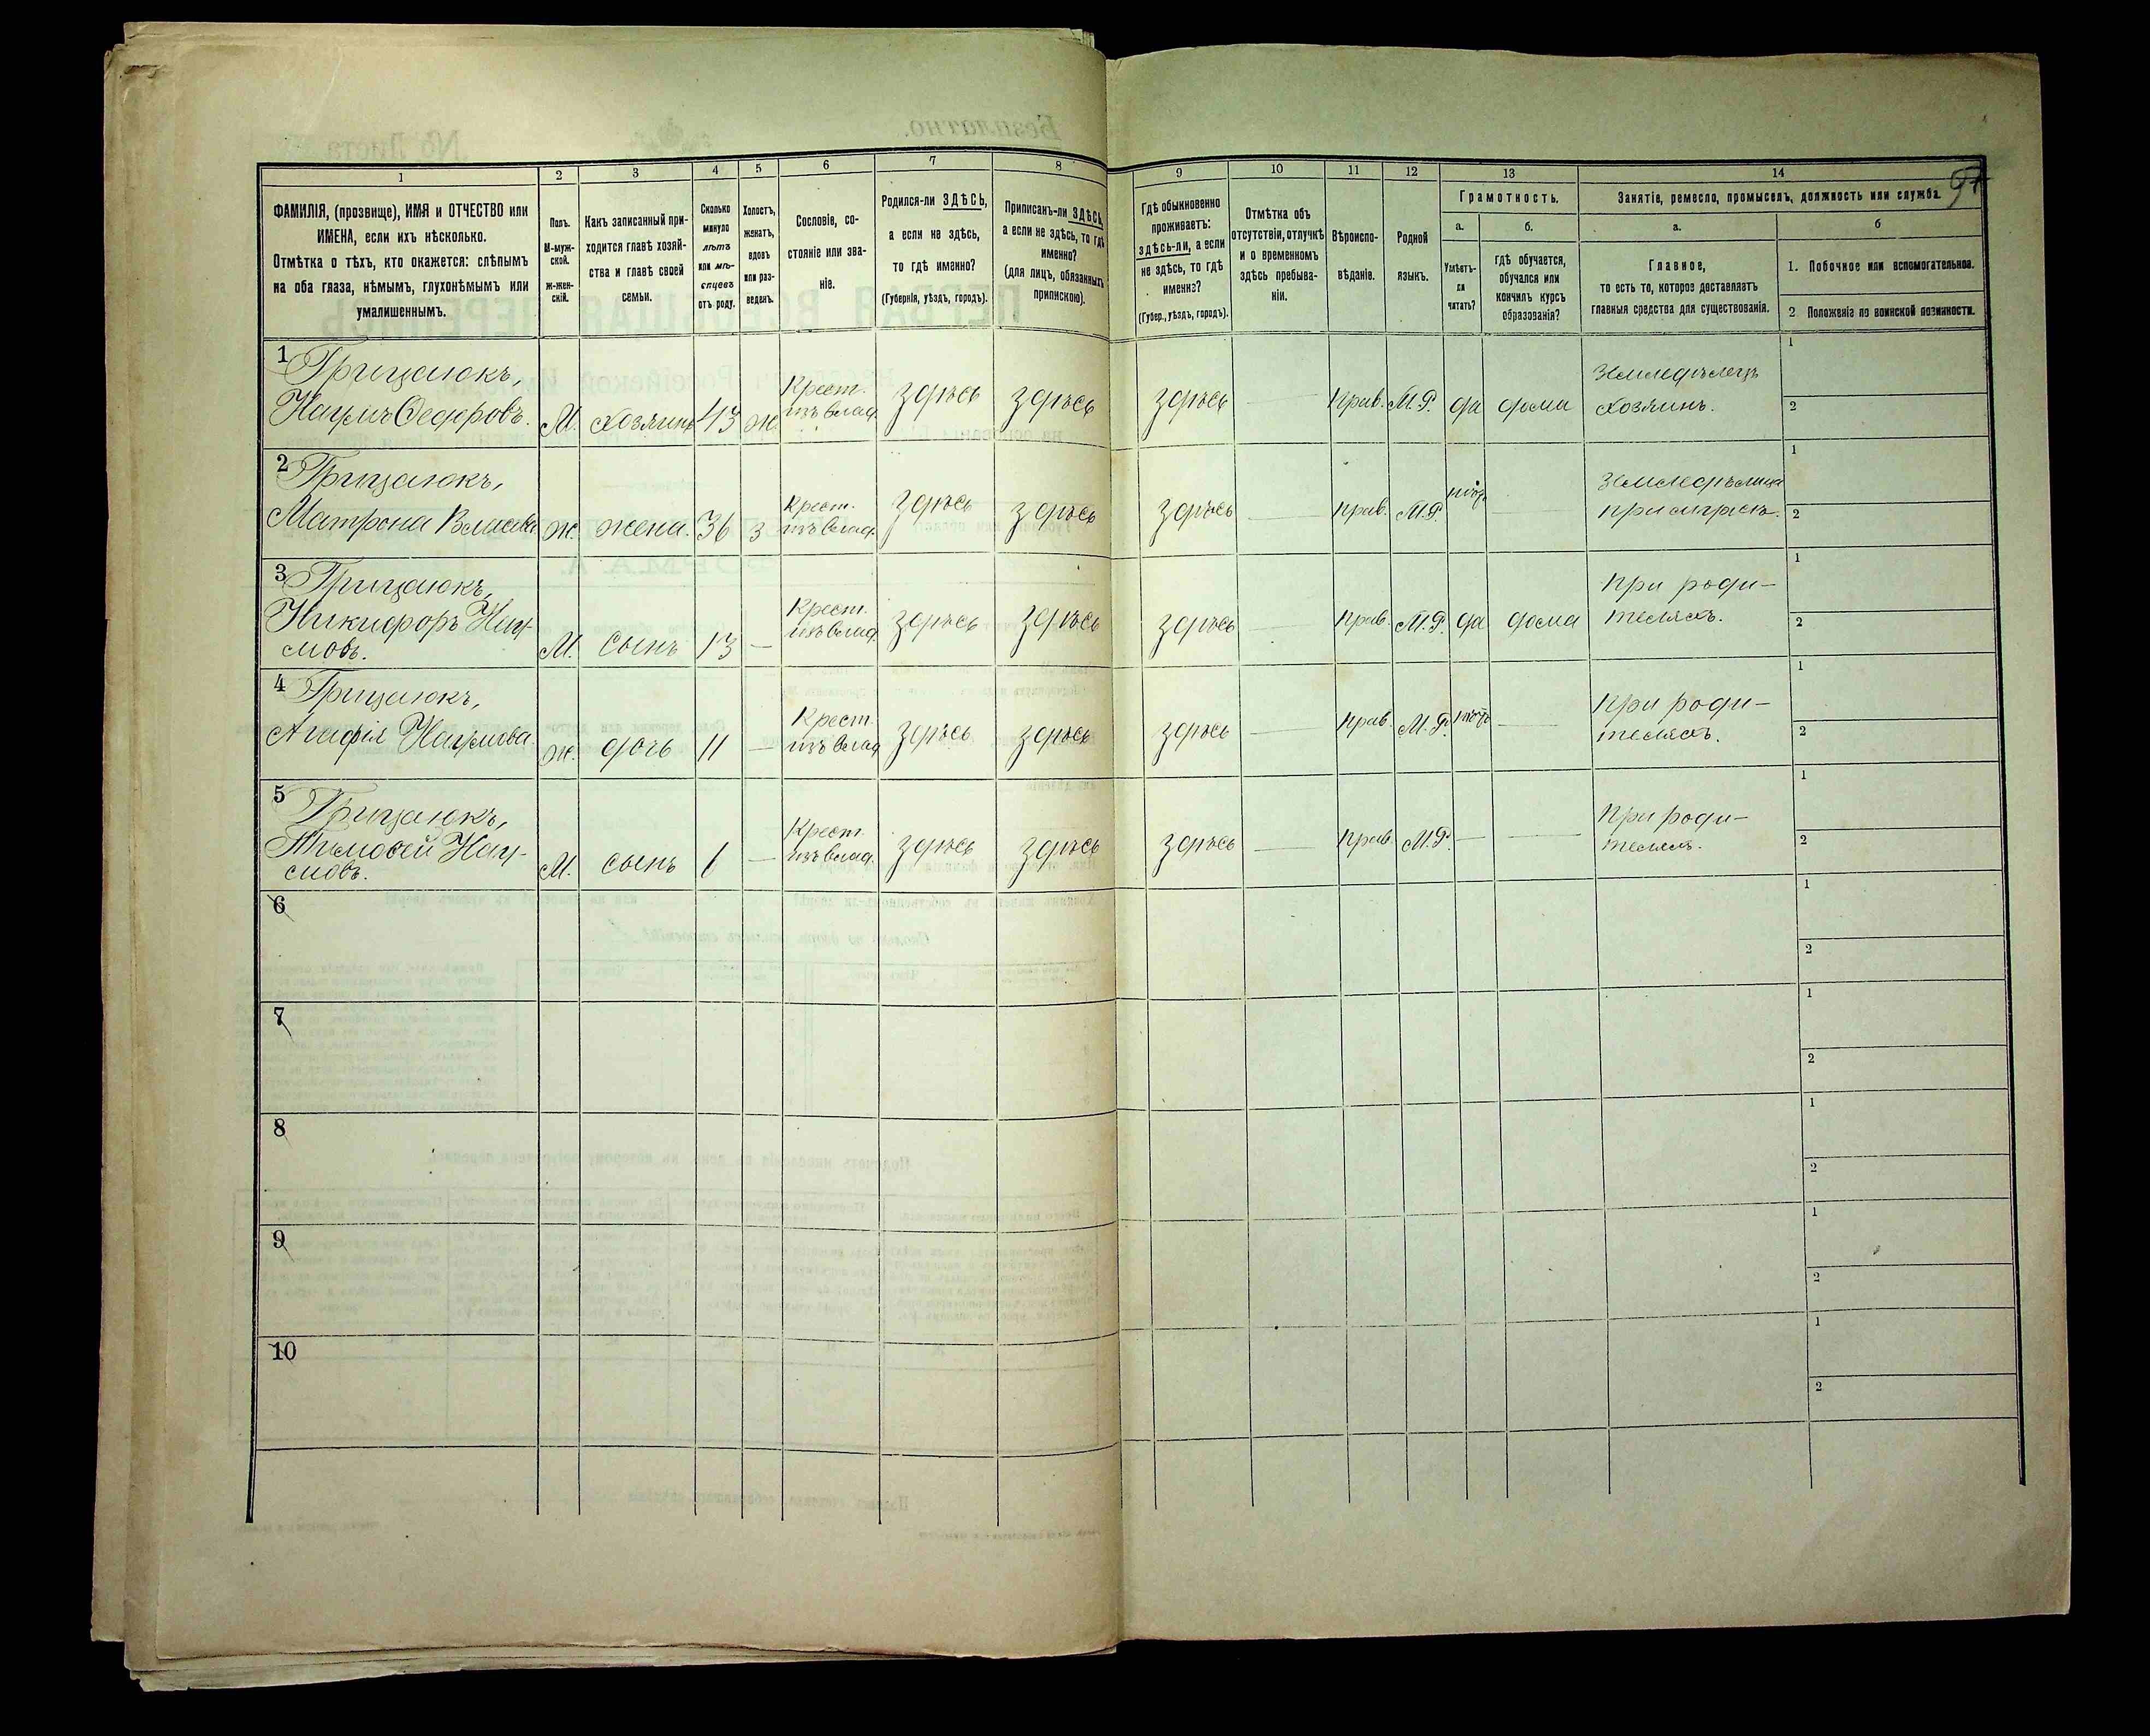 97
1 2 3 4 5 6 7 8 9 10 11 12 13 14
ФАМИЛІЯ, (прозвище), ИМЯ и ОТЧЕСТВО или
ИМЕНА, если ихъ нѣсколько.
Отмѣтка о тѣхъ, кто окажется: слѣпымъ
на оба глаза, нѣмымъ, глухонѣмымъ или
умалишеннымъ.
Полъ.
М-муж-
ской.
Ж-жен-
скій.
Какъ записанный при-
ходится главѣ хозяй-
ства и главѣ своей
семьи.
Сколько
минуло
лѣтъ
или мѣ-
сяцевъ
отъ роду.
Холостъ,
женатъ,
вдовъ
или раз-
веденъ.
Сословіе, со-
стояніе или зва-
ніе.
Родился-ли ЗДѢСЬ,
а если не здѣсь,
то гдѣ именно?
(Губернія, уѣздъ, городъ).
Приписанъ-ли ЗДѢСЬ,
а если не здѣсь, то гдѣ
именно?
(для лицъ, обязанныхъ
припискою).
Гдѣ обыкновенно
проживаетъ:
здѣсь-ли, а если
не здѣсь, то гдѣ
именно?
(Губер., уѣздъ, городъ).
Отмѣтка объ
отсутствіи, отлучкѣ
и о временномъ
здѣсь пребыва-
ніи.
Вѣроиспо-
вѣданіе.
Родной
языкъ.
Грамотность.
а.
Умѣетъ-
ли
читать?
б.
гдѣ обучается,
обучался или
кончилъ курсъ
образованія?
Занятіе, ремесло, промыселъ, должность или служба.
а.
Главное,
то есть то, которое доставляетъ
главныя средства для существованія.
б
1. Побочное или вспомогательное.
2 Положеніе по воинской повинности.
1 Грицаюкъ,
Наумъ Ѳедоровъ. М. Хозяинъ 43 Ж. Крест. изъ влад. здѣсь здѣсь здѣсь — Прав. М.Р. да дома Земледѣлецъ
Хозяинъ. 1
2
2 Грицаюкъ,
Матрона Власова Ж. жена. 36 З Крест. изъ влад. здѣсь здѣсь здѣсь — Прав. М.Р. нѣтъ — 1
2
3 Грицаюкъ,
Никифоръ Нау-
мовъ. М. сынъ 13 — Крест. изъ влад. здѣсь здѣсь здѣсь — Прав. М.Р. да дома При роди-
теляхъ. 1
2
4 Грицаюкъ,
Агафія Наумова. Ж. дочь 11 — Крест. изъ влад. здѣсь здѣсь здѣсь — Прав. М.Р. нѣтъ — При роди-
теляхъ. 1
2
5 Грицаюкъ,
Тимоѳей Нау-
мовъ. М. сынъ 6 — Крест. изъ влад. здѣсь здѣсь здѣсь — Прав. М.Р. — — При роди-
теляхъ. 1
2
6 1
2
7 1
2
8 1
2
9 1
2
10 1
2